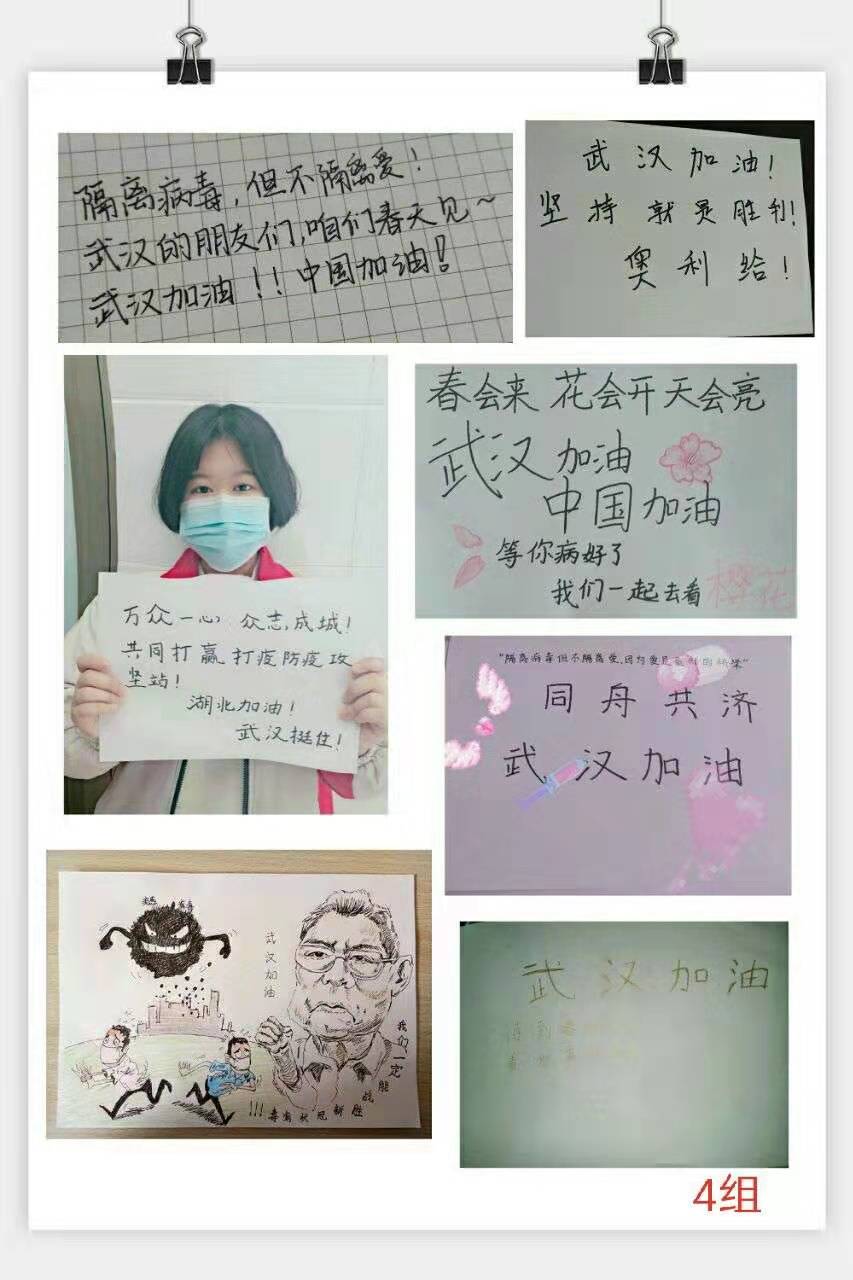 隔离病毒，但不隔离爱！
武汉的朋友们，咱们春天见~
武汉加油！！中国加油！
武汉加油！
坚持就是胜利！
奥利给！
万众一心，众志成城！
共同打赢打疫防疫攻
坚站！
湖北加油！
武汉挺住！
春会来 花会开 天会亮
武汉加油
中国加油
等你病好了
我们一起去看樱花
"隔离病毒但不隔离爱，因为爱是最好的桥梁"
同舟共济
武汉加油
武汉加油
我们一定
能战胜新冠状病毒!!!
武汉加油
4组